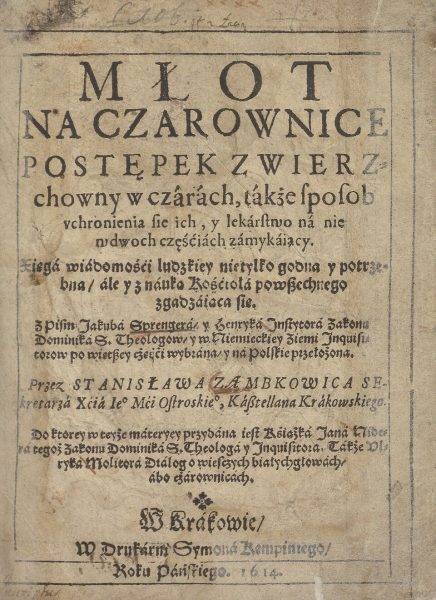 MŁOT
NA CZAROWNICE
POSTĘPEK ZWIERZ-
chowny w czárách, tákże sposob
vchronienia sie ich, y lekárstwo ná nie
wdwoch częśćiách zámykáiący.
Xięgá wiádomośći ludzkiey nietylko godna y potrze-
bna/ ále y z náuką Kośćiołá powßechnego
zgadzáiąca się.
Z Pism Jakubá Sprengerá/ y Henryká Instytorá Zakonu
Dominiká S. Theologow/ y w Niemieckiey Ziemi Inquisi-
torow po więtßey częśći wybrána/ y ná Polskie przełożona.
Przez STANISŁAWA ZĄMBKOWICA SE-
kretarzá Xćiá Ieº Mći Ostroskieº, Káßtellana Krákowskiego.
Do ktorey w teyże máteryey przydána iest Kśiążká Janá Nide-
rá tegoż Zakonu Dominiká S. Theologá y Inquisitorá. Tákże Vl-
ryká Molitorá Dialog o wießczych białychgłowách/
ábo czárownicách.
W Krákowie/
W Drukárni Symoná Kempiniego/
Roku Páńskiego. 1614.